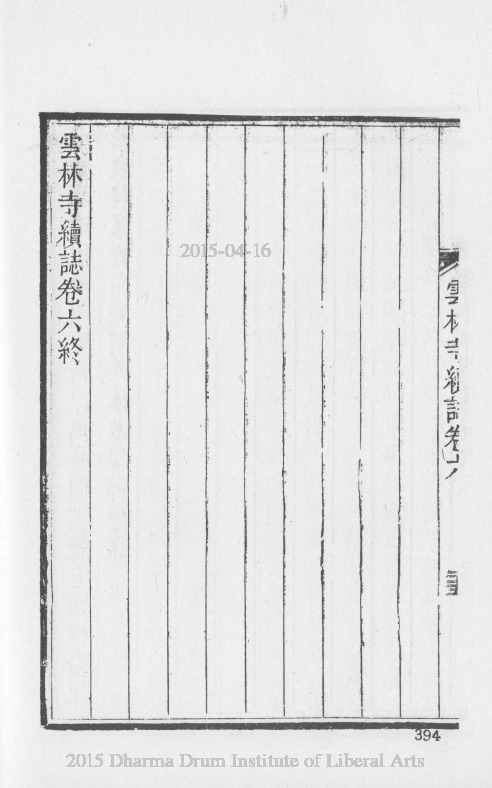 雲林寺續誌卷六
雲林寺續誌卷六終
2015-04-16
394
2015 Dharma Drum Institute of Liberal Arts